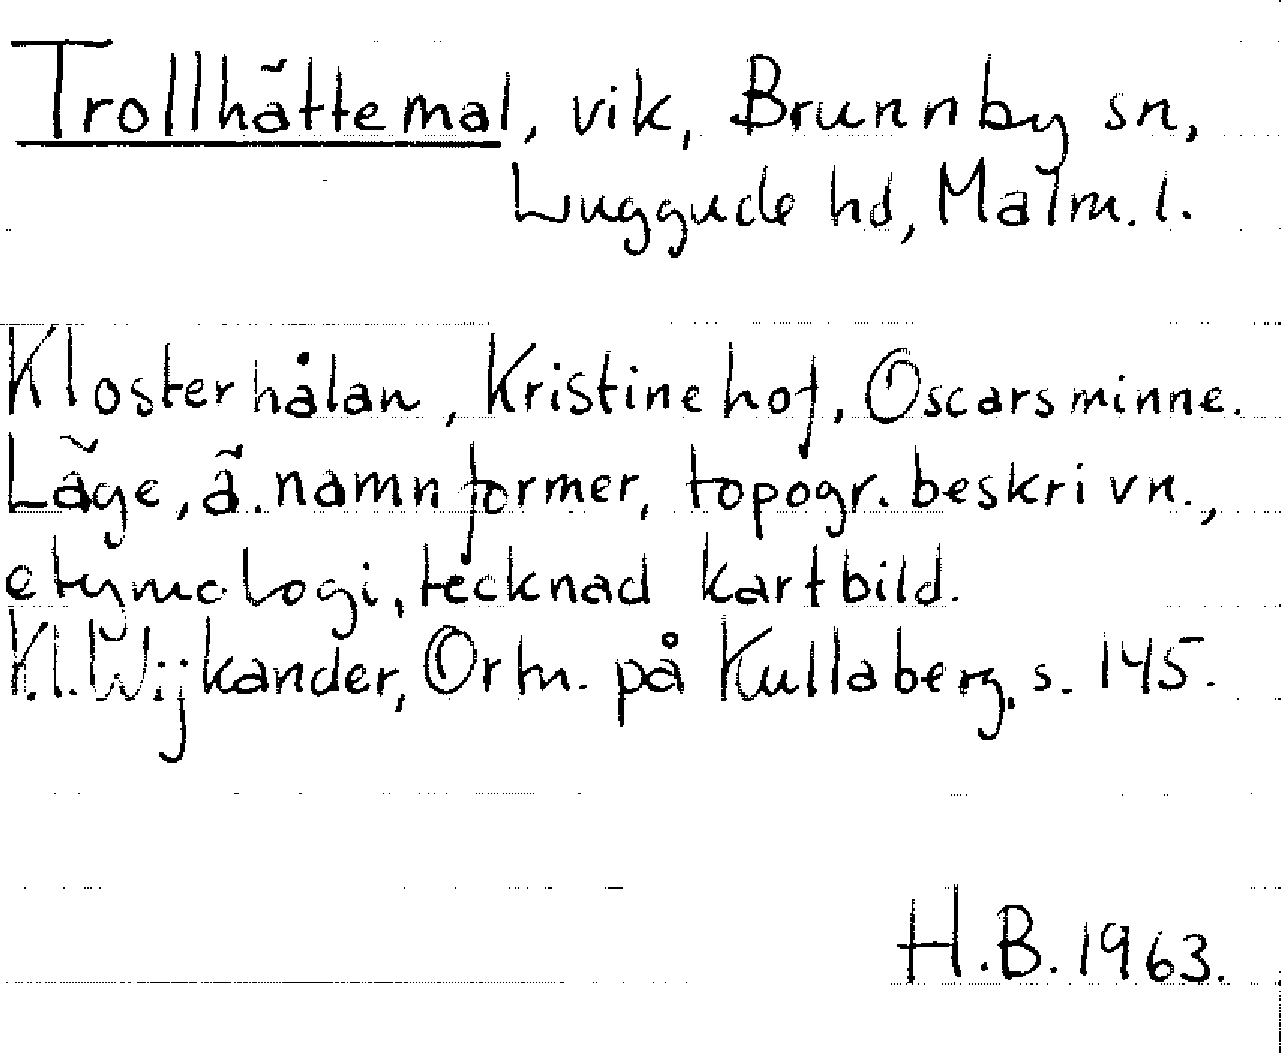 Trollhättemal, vik, Brunnby sn,
Luggude hd, Malm. l.
Klosterhålan, Kristinehof, Oscarsminne.
Läge, ä. namnformer, topogr. beskrivn.,
etymologi, tecknad kartbild.
K.I. Wijkander, Ortn. på Kullaberg, s. 145.
H.B. 1963.